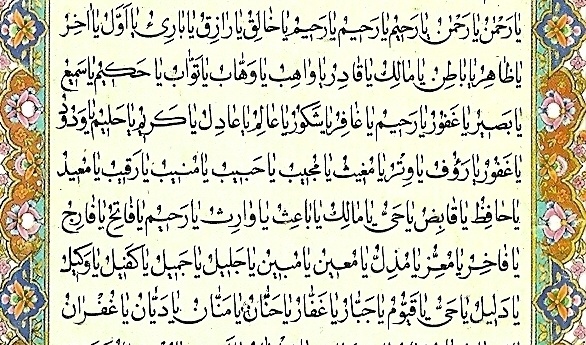 يَا رَحْمٰنُ يَا رَحْمٰنُ يَا رَحِيْمُ يَا رَحِيْمُ يَا رَحِيْمُ يَا خَالِقُ يَا رَازِقُ يَا بَارِئُ يَا اَوَّلُ يَا اٰخِرُ
يَا ظَاهِرُ يَا بَاطِنُ يَا مَالِكُ يَا قَادِرُ يَا وَاهِبُ يَا وَهَّابُ يَا تَوَّابُ يَا حَكِيْمُ يَا سَمِيْعُ
يَا بَصِيْرُ يَا غَفُوْرُ يَا رَحِيْمُ يَا غَافِرُ يَا شَكُوْرُ يَا عَالِمُ يَا عَادِلُ يَا كَرِيْمُ يَا حَلِيْمُ يَا وَدُوْدُ
يَا غَفُوْرُ يَا رَؤُفُ يَا وِتْرُ يَا مُغِيْثُ يَا مُجِيْبُ يَا حَبِيْبُ يَا مُنِيْبُ يَا رَقِيْبُ يَا مُعِيْدُ
يَا حَافِظُ يَا قَابِضُ يَا حَيُّ يَا مَالِكُ يَا بَاعِثُ يَا وَارِثُ يَا رَحِيْمُ يَا فَاتِحُ يَا فَارِجُ
يَا فَاخِرُ يَا مُعِزُّ يَا مُذِلُّ يَا مُعِيْنُ يَا مُبِيْنُ يَا جَلِيْلُ يَا جَمِيْلُ يَا كَفِيْلُ يَا وَكِيْلُ
يَا دَلِيْلُ يَا حَيُّ يَا قَيُّوْمُ يَا جَبَّارُ يَا غَفَّارُ يَا حَنَّانُ يَا مَنَّانُ يَا دَيَّانُ يَا غُفْرَانُ